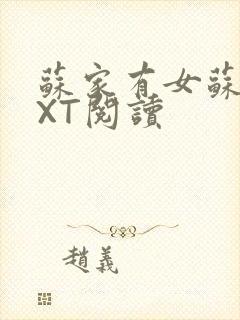 蘇家有女蘇
XT閱讀
趙義